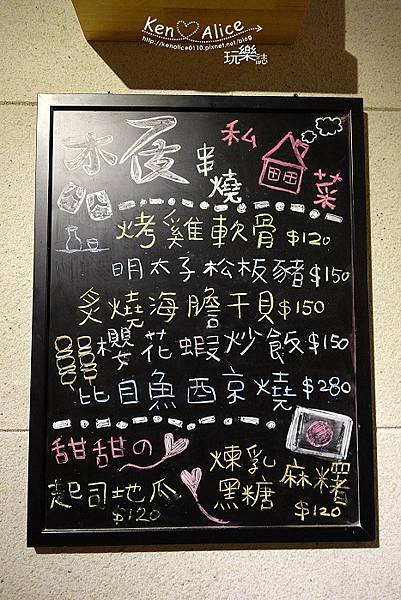 Ken♡Alice
http://kenalice0110.pixnet.net/blog
玩樂誌
木夜串燒
私菜
烤雞軟骨$120
明太子松板豬$150
炙燒海膽干貝$150
櫻花蝦炒飯$150
比目魚西京燒$280
甜甜の
起司地瓜
$120
煉乳
黑糖麻糬
$120